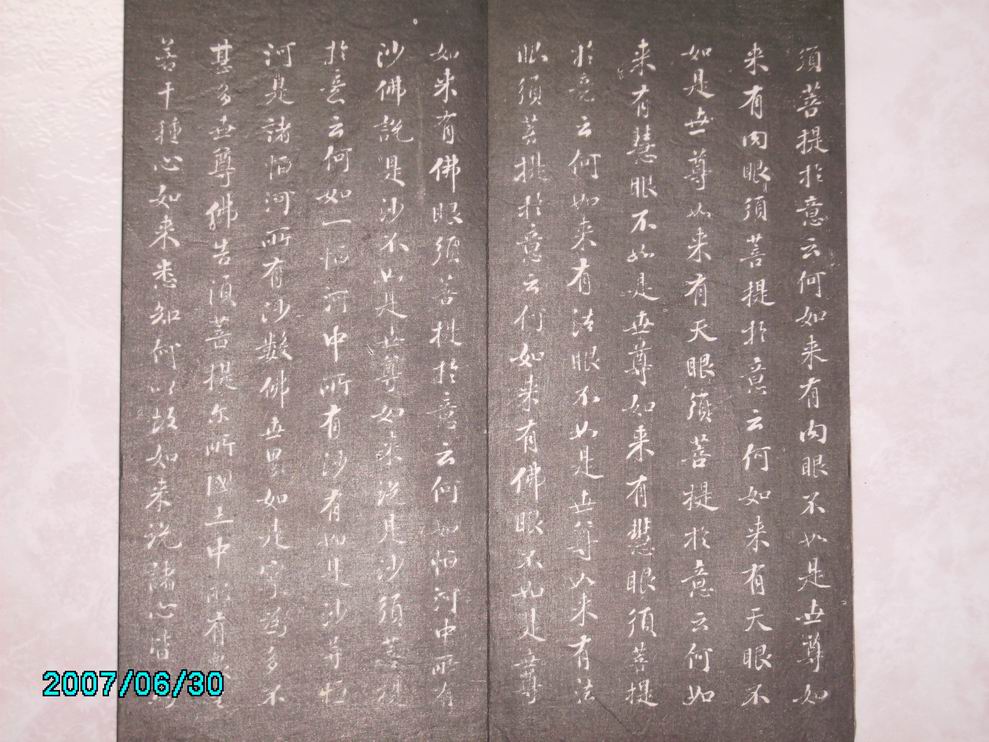 須菩提於意云何如来有肉眼不如是世尊如
来有肉眼須菩提於意云何如来有天眼不
如是世尊如来有天眼須菩提於意云何如
来有慧眼不如是世尊如来有慧眼須菩提
於意云何如来有法眼不如是世尊如来有法
眼須菩提於意云何如来有佛眼不如是世尊
如来有佛眼須菩提於意云何如恒河中所有
沙佛說是沙不如是世尊如来說是沙須菩提
於意云何如一恒河中所有沙有如是沙等恒
河是諸恒河所有沙數佛世界如是寧為多不
甚多世尊佛告須菩提尔所國土中所有衆生
若干種心如来悉知何以故如来說諸心皆為
2007/06/30